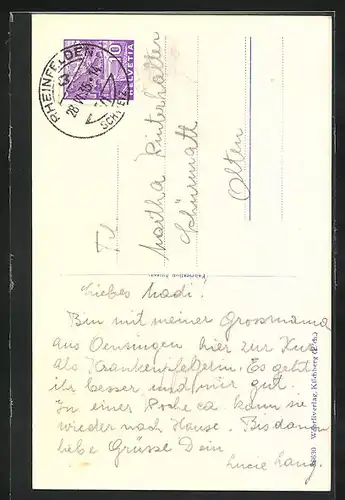 RHEINFELDEN
SCHWEIZ
10
HELVETIA
Frl.
Martha Rinterhalter
Schürmatt
Olten
Liebes Madi.
Bin mit meiner Grossmama
aus Oensingen hier zur Kur
als Krankenpflegerin. Es geht
ihr besser und mir gut.
In einer Woche ca. kann sie
wieder nach Hause. Bis dann
liebe Grüsse Dein
Lucie Lang.
Wehrliverlag, Kilchberg (Zch.)